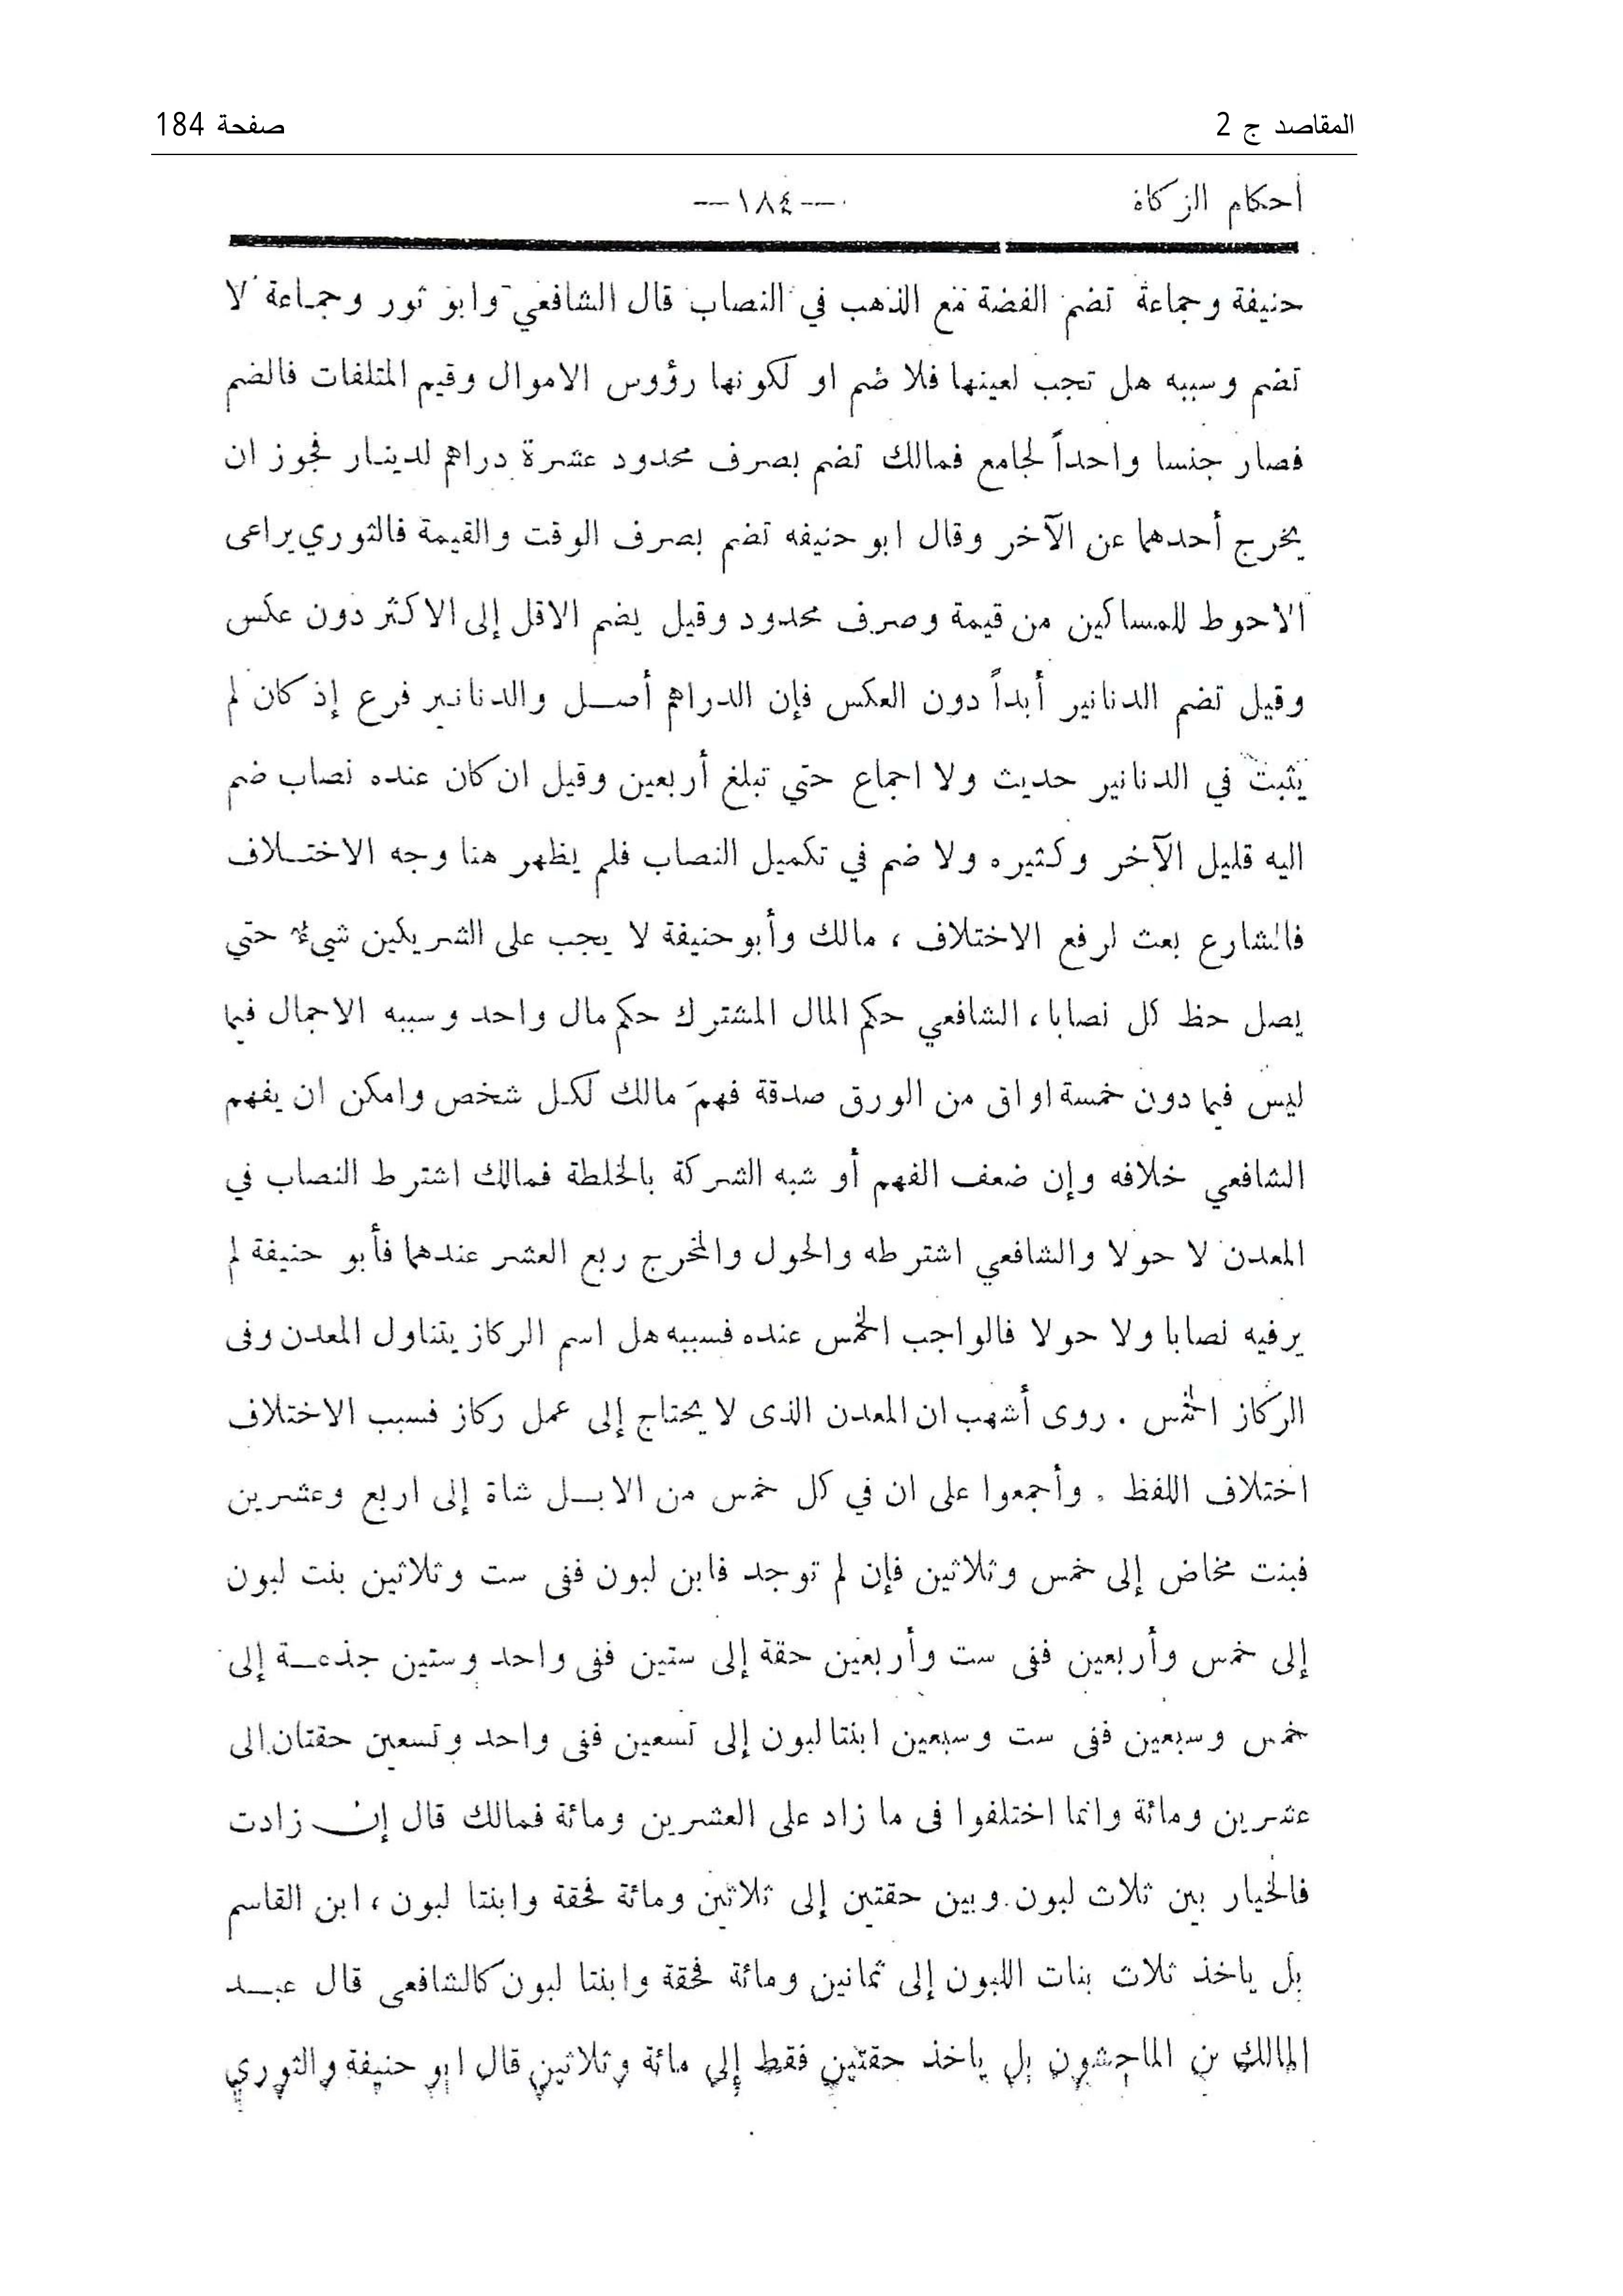 المقاصد ج 2 صفحة 184
أحكام الزكاة --١٨٤--
حنيفة وجماعة تضم الفضة مع الذهب في النصاب قال الشافعي وابو ثور وجماعة لا
تضم وسببه هل تجب لعينها فلا ضم او لكونها رؤوس الاموال وقيم المتلفات فالضم
فصار جنسا واحداً لجامع فمالك تضم بصرف محدود عشرة دراهم لدينار فجوز ان
يخرج أحدهما عن الآخر وقال ابو حنيفه تضم بصرف الوقت والقيمة فالثوري يراعى
الاحوط للمساكين من قيمة وصرف محدود وقيل يضم الاقل إلى الاكثر دون عكس
وقيل تضم الدنانير أبداً دون العكس فإن الدراهم أصل والدنانير فرع إذ كان لم
يثبت في الدنانير حديث ولا اجماع حتي تبلغ أربعين وقيل ان كان عنده نصاب ضم
اليه قليل الآخر وكثيره ولا ضم في تكميل النصاب فلم يظهر هنا وجه الاختلاف
فالشارع بعث لرفع الاختلاف ، مالك وأبو حنيفة لا يجب على الشريكين شيء حتي
يصل حظ كل نصابا ، الشافعي حكم المال المشترك حكم مال واحد وسببه الاجمال فيما
ليس فيما دون خمسة اواق من الورق صدقة فهمَ مالك لكل شخص وامكن ان يفهم
الشافعي خلافه وإن ضعف الفهم أو شبه الشركة بالخلطة فمالك اشترط النصاب في
المعدن لا حولا والشافعي اشترطه والحول والمخرج ربع العشر عندهما فأبو حنيفة لم
ير فيه نصابا ولا حولا فالواجب الخمس عنده فسببه هل اسم الركاز يتناول المعدن وفى
الركاز الخمس . روى أشهب ان المعدن الذى لا يحتاج إلى عمل ركاز فسبب الاختلاف
اختلاف اللفظ . وأجمعوا على ان في كل خمس من الابل شاة إلى اربع وعشرين
فبنت مخاض إلى خمس وثلاثين فإن لم توجد فابن لبون ففى ست وثلاثين بنت لبون
إلى خمس وأربعين ففى ست وأربعين حقة إلى ستين ففى واحد وستين جذعة إلى
خمس وسبعين ففى ست وسبعين ابنتا لبون إلى تسعين ففى واحد وتسعين حقتان الى
عشرين ومائة وانما اختلفوا فى ما زاد على العشرين ومائة فمالك قال إن زادت
فالخيار بين ثلاث لبون وبين حقتين إلى ثلاثين ومائة فحقة وابنتا لبون ، ابن القاسم
بل ياخذ ثلاث بنات اللبون إلى ثمانين ومائة فحقة وابنتا لبون كالشافعى قال عبد
المالك بن الماجشون بل ياخذ حقتين فقط إلى مائة وثلاثين قال ابو حنيفة والثوري